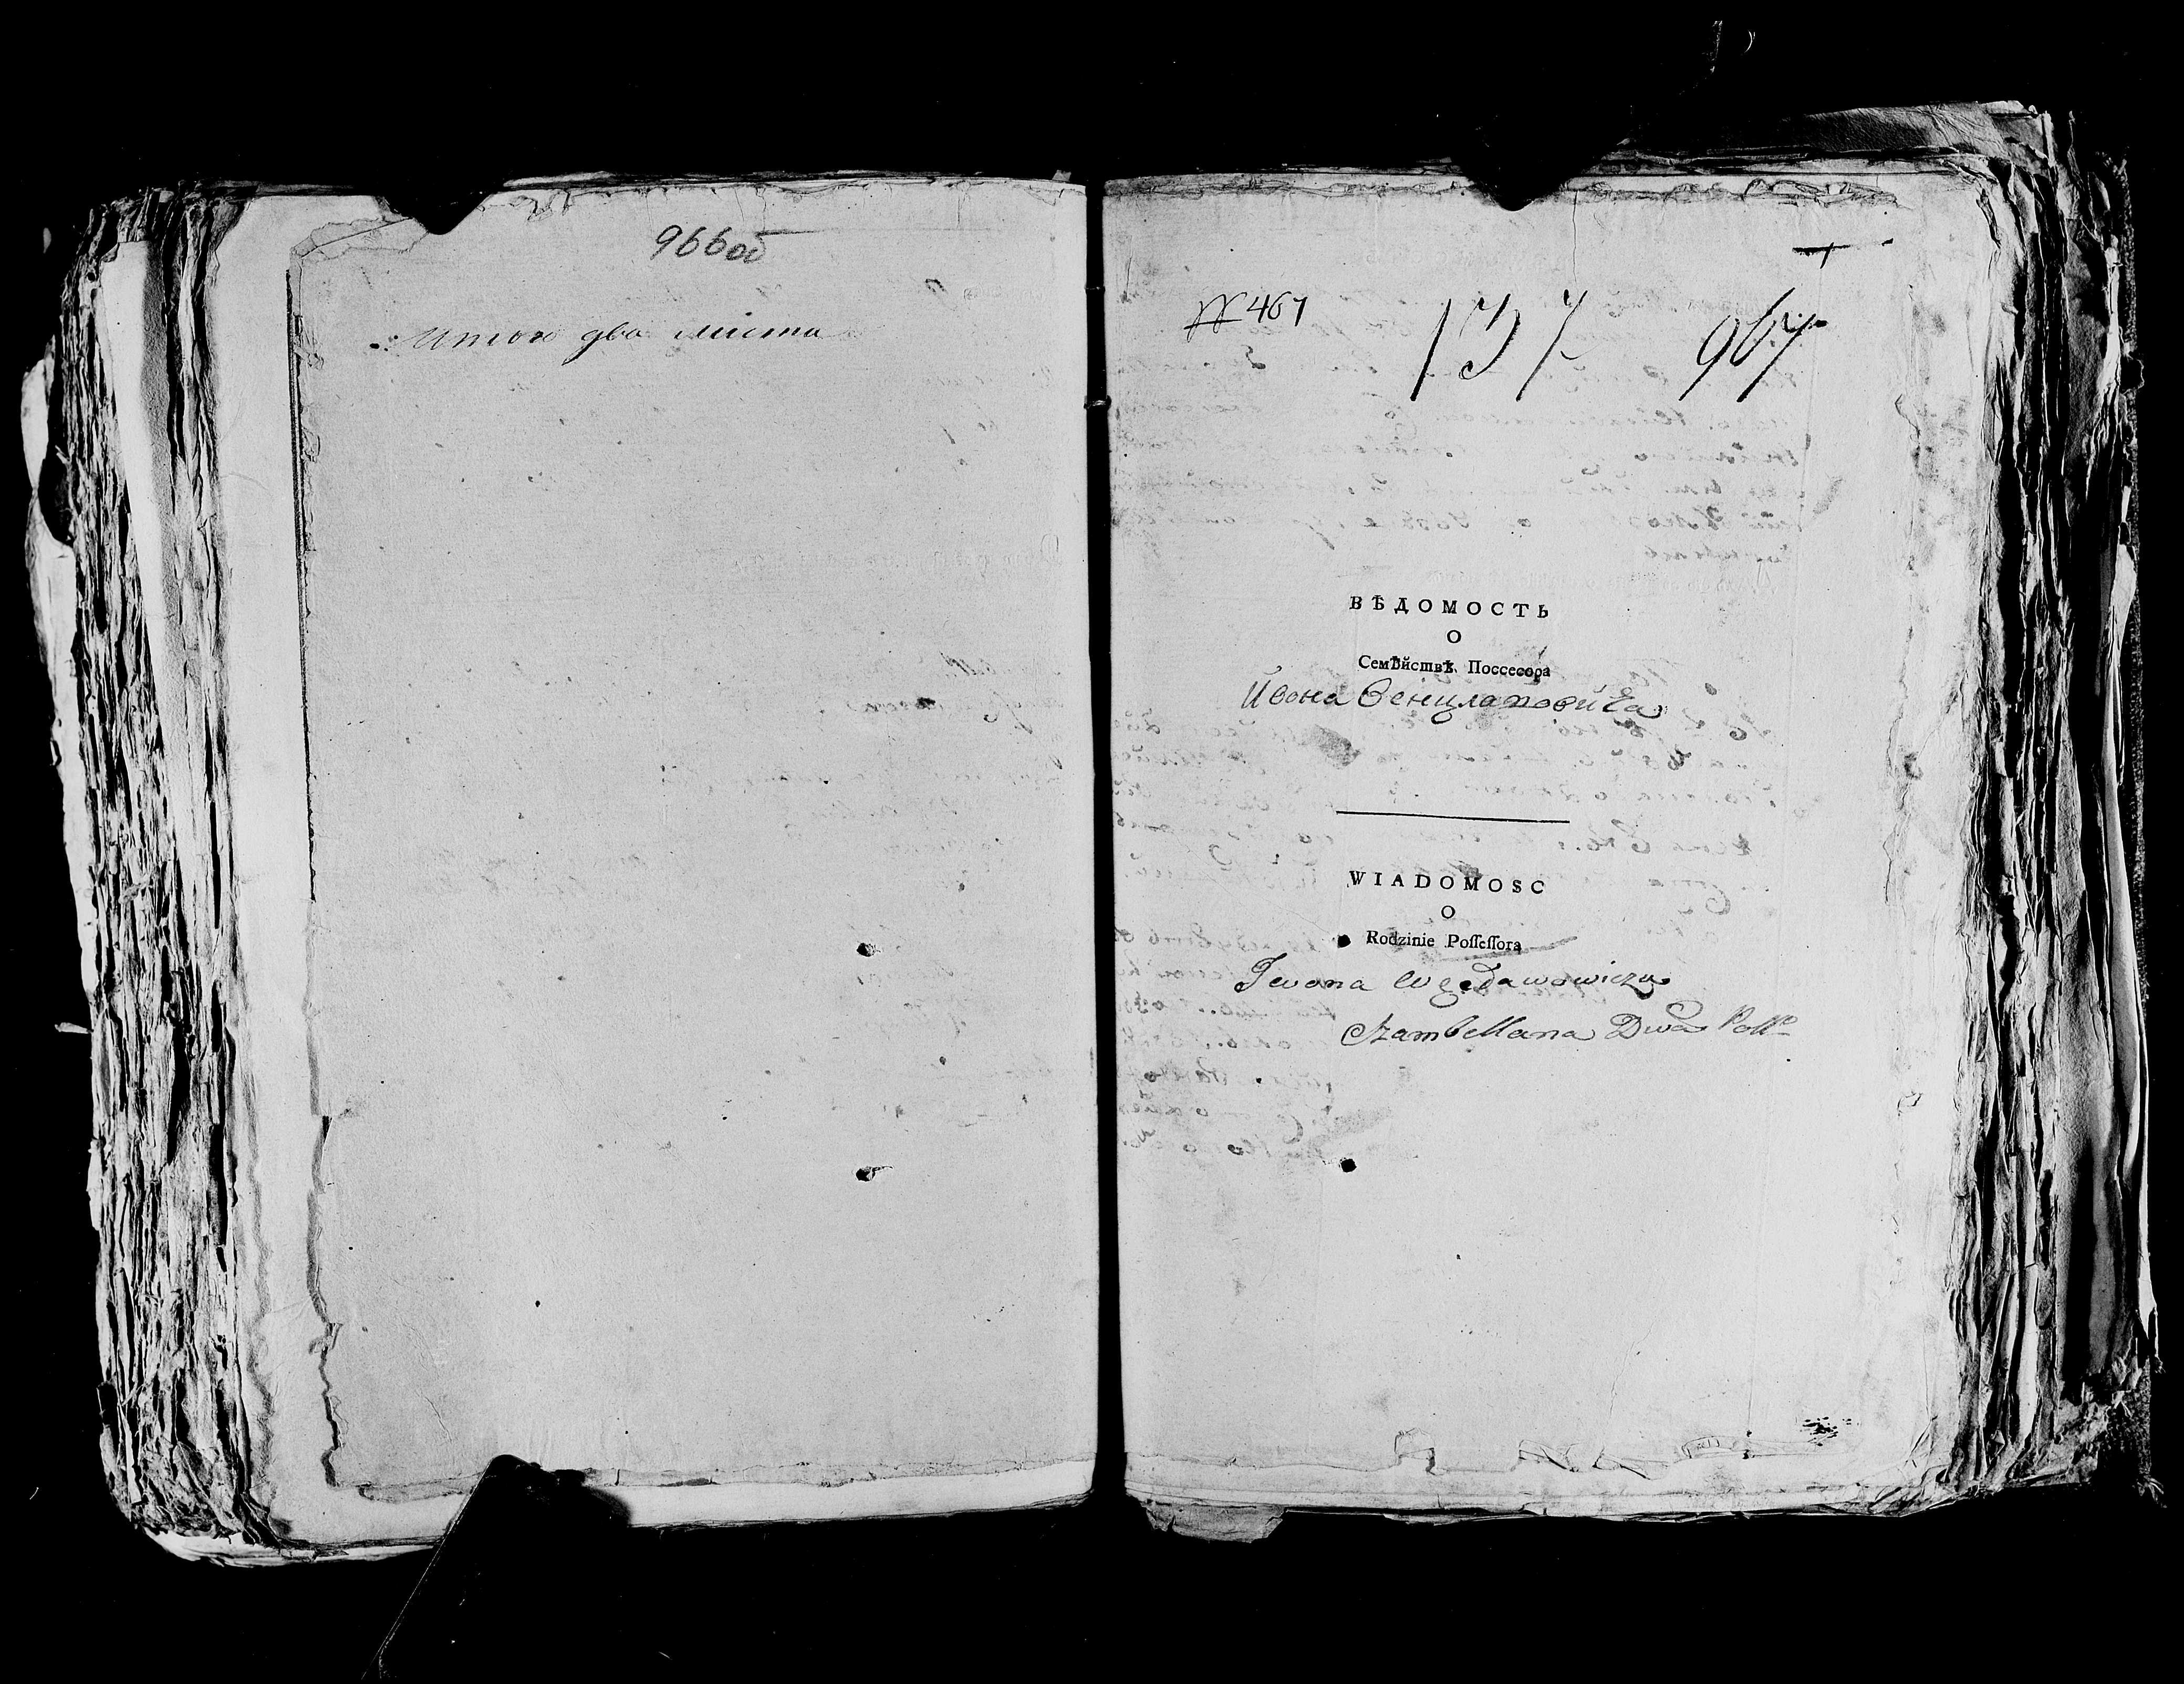 966 об
Итого два листа
№ 467
137
967
ВѢДОМОСТЬ
О
Семѣйствѣ Поссесора
Ивона Венцлавовича
WIADOMOSC
O
Rodzinie Poſſeſſora
Iwona Węcławowicza
Szambellana Dwo Polo